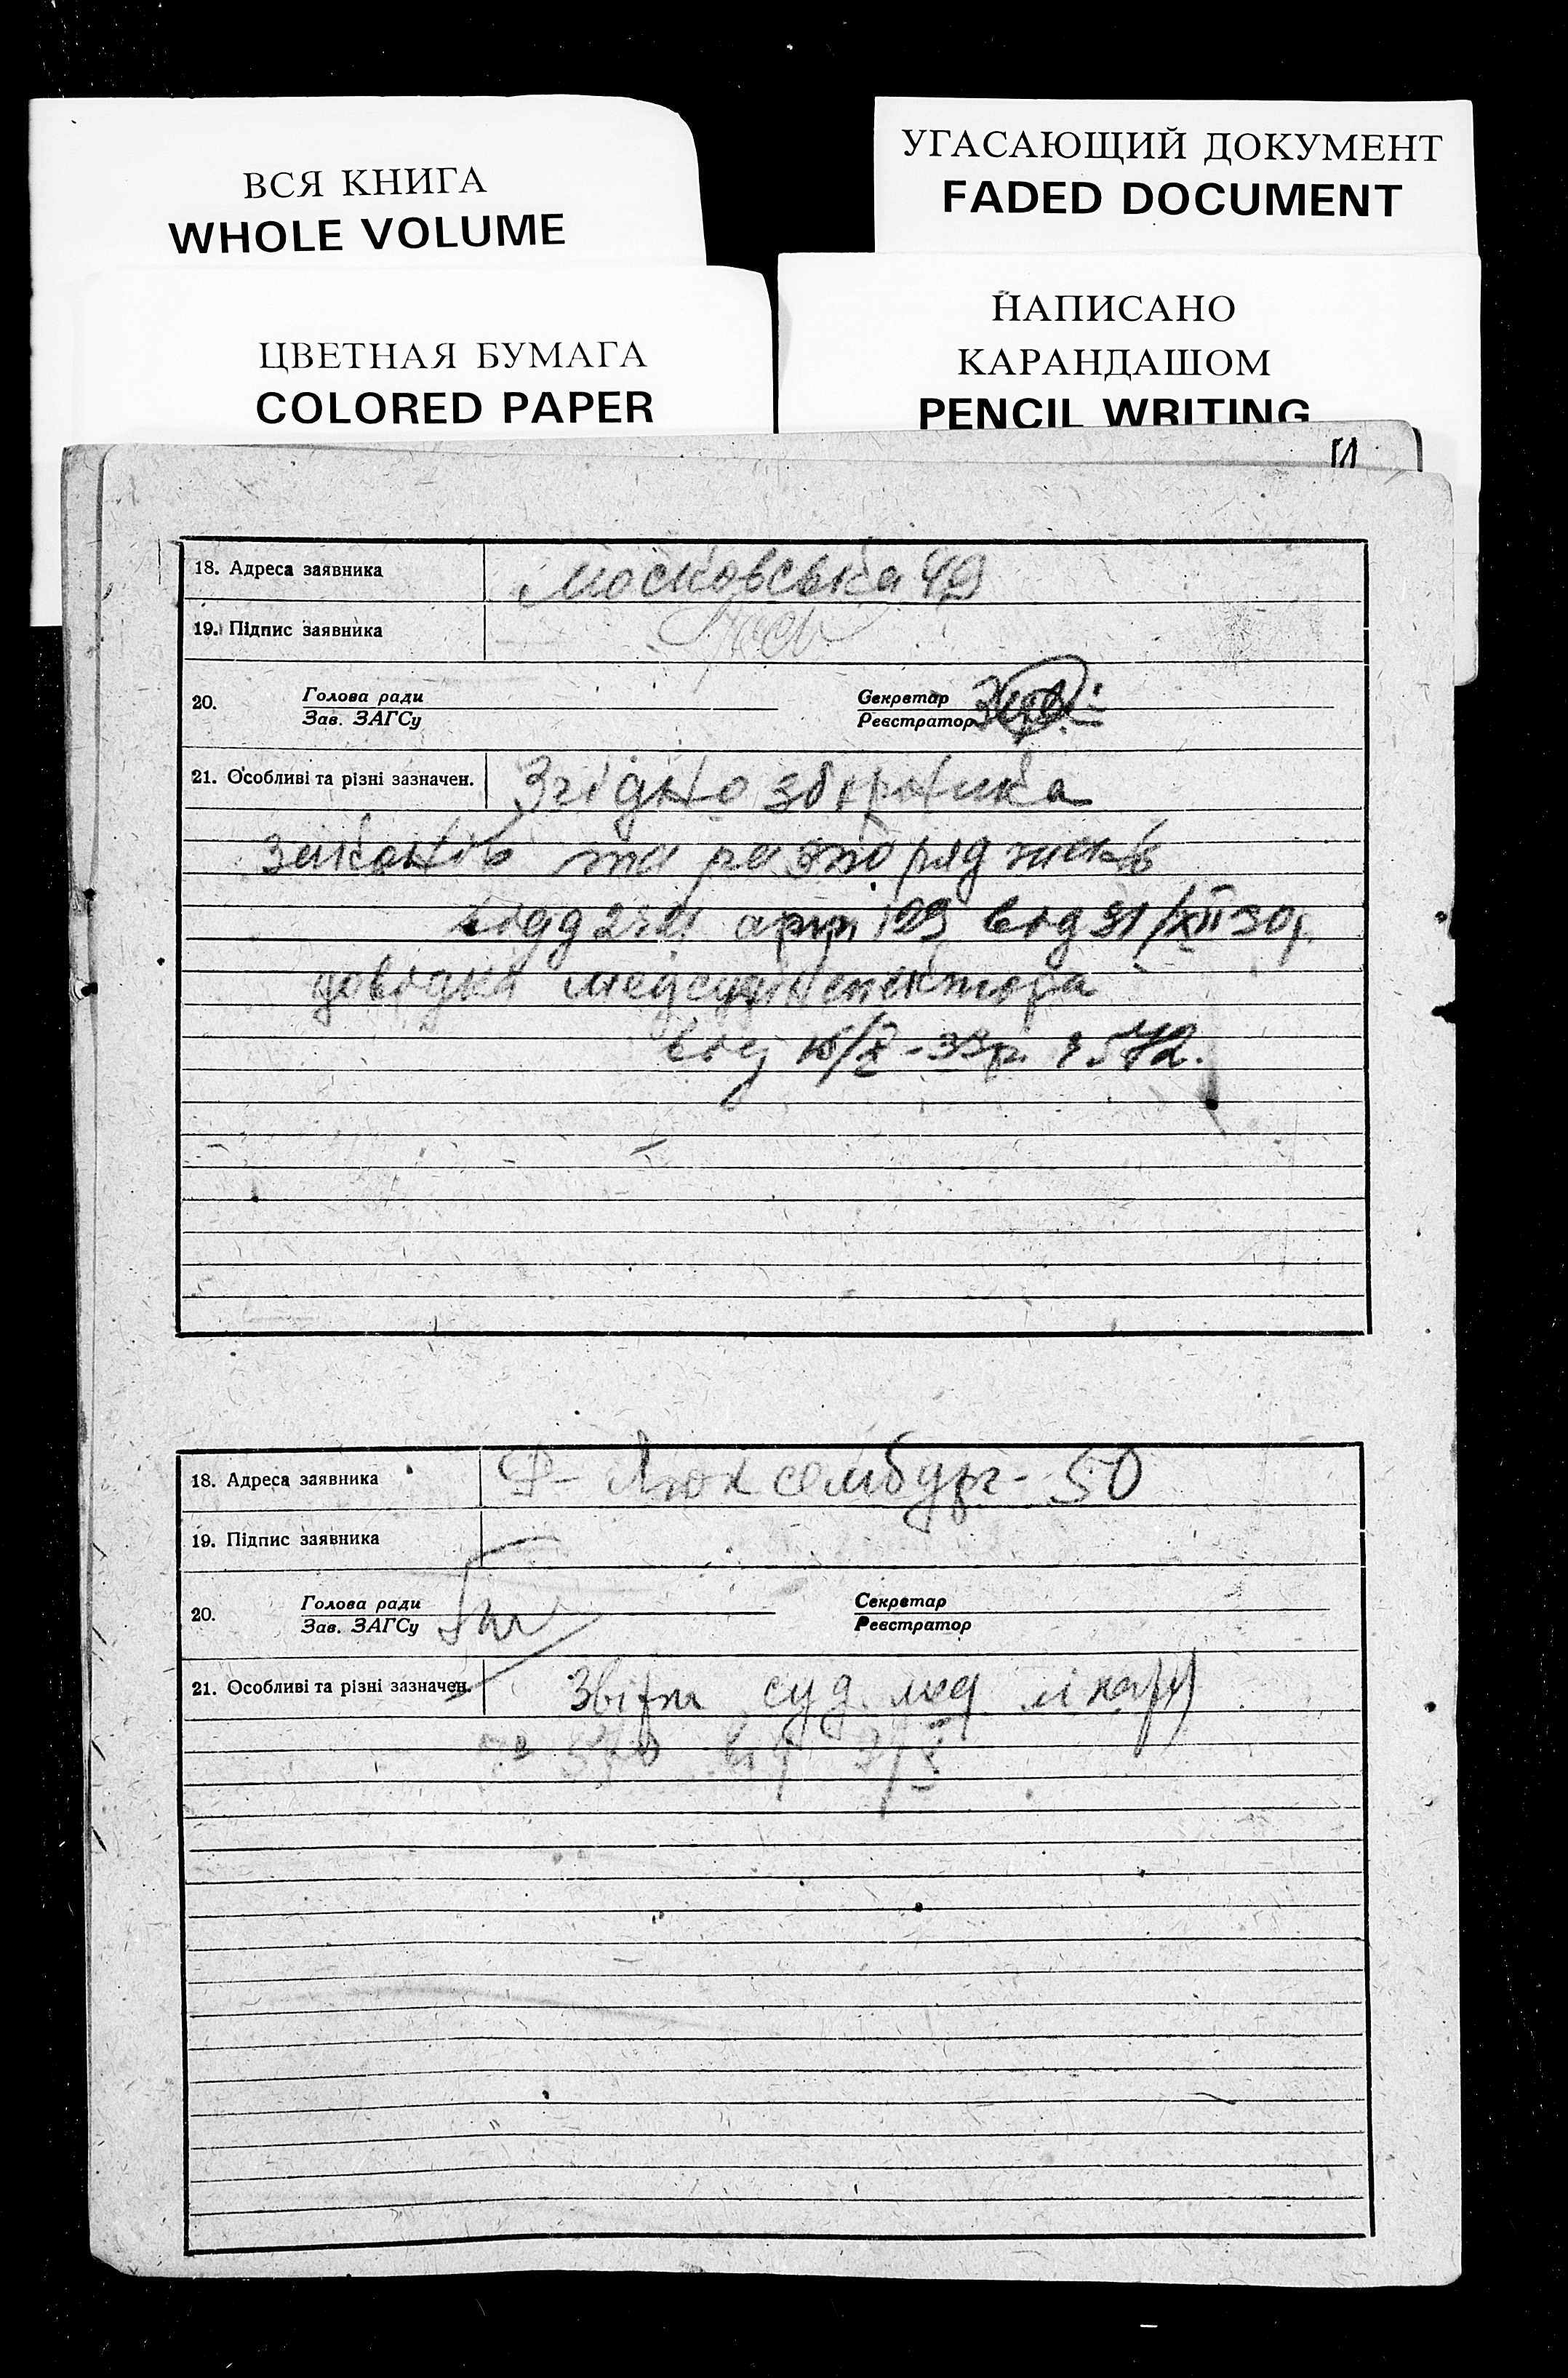 ВСЯ КНИГА
WHOLE VOLUME
УГАСАЮЩИЙ ДОКУМЕНТ
FADED DOCUMENT
ЦВЕТНАЯ БУМАГА
COLORED PAPER
НАПИСАНО
КАРАНДАШОМ
PENCIL WRITING
18. Адреса заявника Московська 49
19. Підпис заявника
20. Голова ради Секретар
Зав. ЗАГСу Реєстратор
21. Особливі та різні зазначен. Згідно збірника
законів та розпоряджень
від 31/XII 30р.
довідка медсудінспектора
від 33р. 572.
18. Адреса заявника Р- Люксембург - 50
19. Підпис заявника
20. Голова ради Секретар
Зав. ЗАГСу Реєстратор
21. Особливі та різні зазначен. суд. мед. лікаря
№ 570 від 9/X